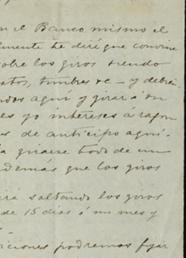 n el Banco mismo el
mente he dere que convine
obre los giros siendo
atos, timbres &c — y debien
aqui y girará en
es yo intereses a razon
as de anticipo aqui
a girarse todo de un
demás que los giros
rá saltando los giros
de 15 dias ó un mes y
iciones podremos fijar